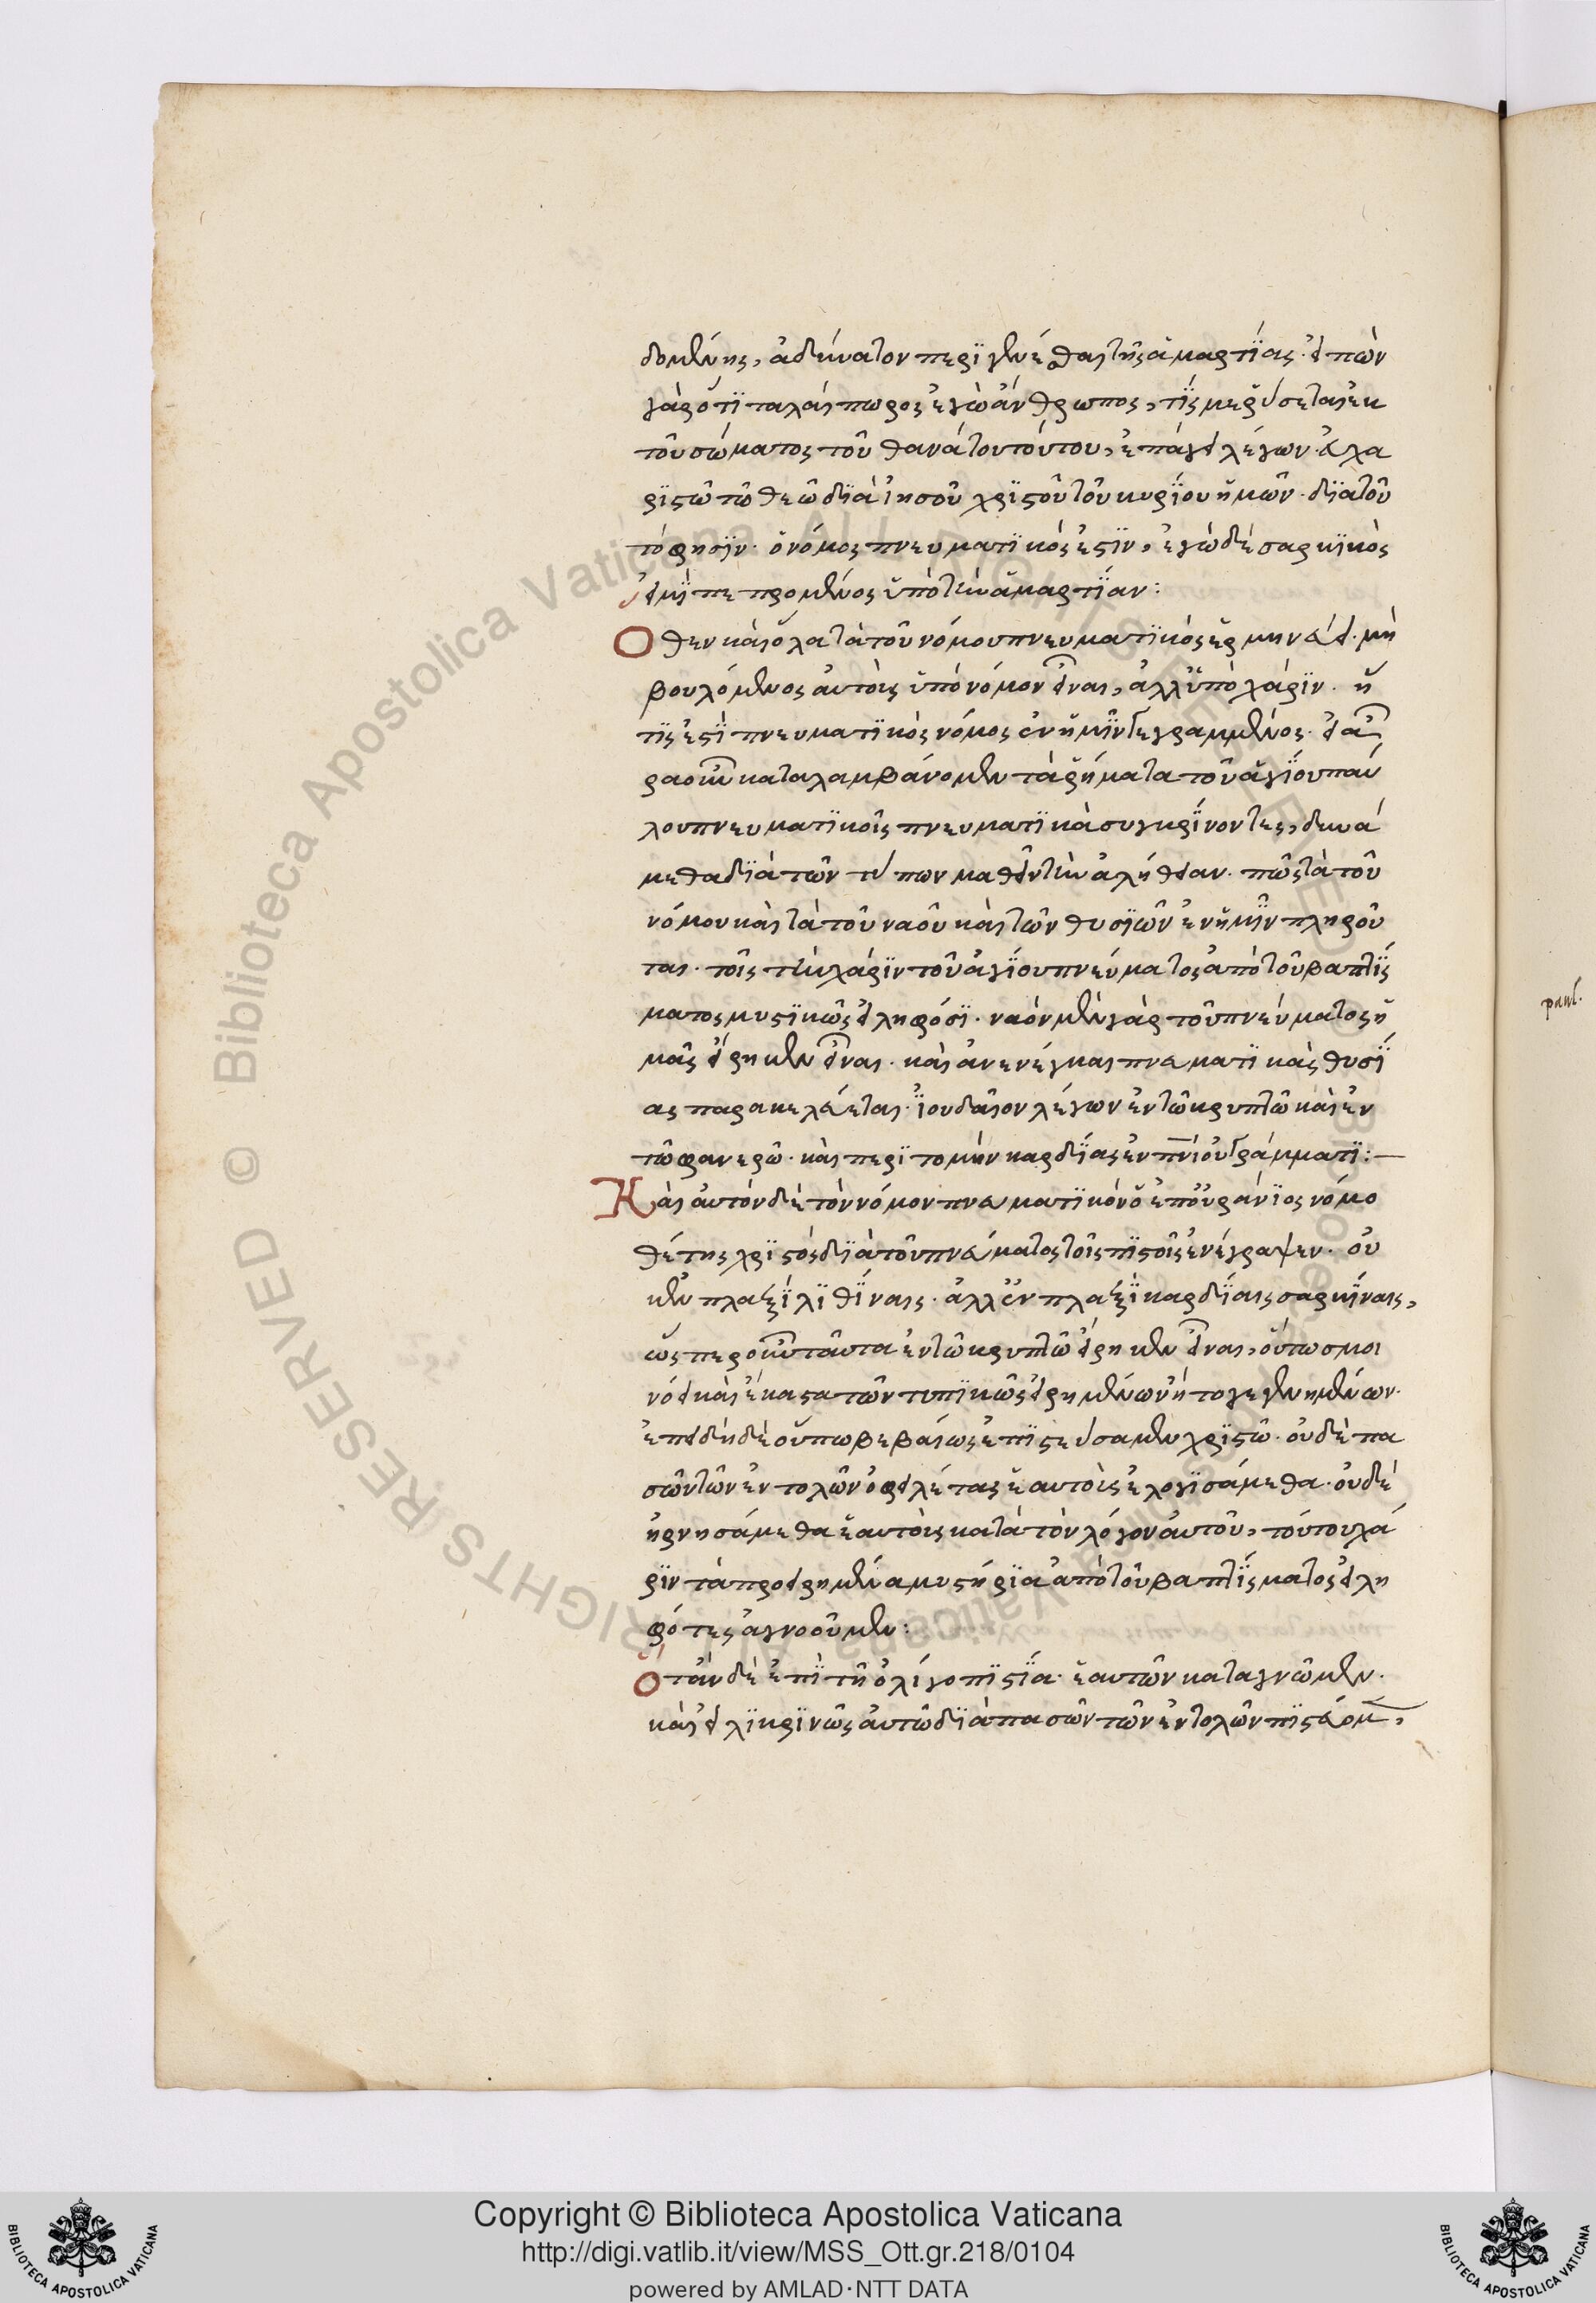 δομένης, ἀδύνατον περϊγενέσθαι τῆς ἁμαρτΐας. εἰπὼν
γὰρ ὅτϊ ταλαίπωρος ἐγὼ ἄνθρωπος, τΐς με ῥύσεται ἐκ
τοῦ σώματος τοῦ θανάτου τούτου, ἐπάγει λέγων. εὐχα
ρϊστῶ τῶ θεῶ δϊὰ ἰησοῦ χρϊστοῦ τοῦ κυρΐου ἡμῶν. δϊατοῦ
τό φησϊν. ὁ νόμος πνευματϊκός ἐστϊν, ἐγὼ δὲ σαρκϊκὸς
εἰμῒ πεπρομένος ὑπὸ τὴν ἁμαρτΐαν:
Ὅθεν καὶ ὅλα τὰ τοῦ νόμου πνευματϊκὸς ἑρμηνεύει. μὴ
βουλόμενος αὐτοὺς ὑπὸ νόμον εἶναι, ἀλλ' ὑπὸ χάρϊν. ἥ
τϊς ἐστῒ πνευματϊκὸς νόμος ἐν ἡμῖν γεγραμμένος. εἰ ἆ
ρα οὖν καταλαμβάνομεν τὰ ῥήματα τοῦ ἁγΐου παύ
λου πνευματϊκοῖς πνευματϊκὰ συγκρΐνοντες, δυνά
μεθα δϊὰ τῶν τύπων μαθεῖν τὴν ἀλήθειαν. πῶς τὰ τοῦ
νόμου καὶ τὰ τοῦ ναοῦ καὶ τῶν θυσϊῶν ἐν ἡμῖν πληροῦ
ται. τοῖς τὴν χάρϊν τοῦ ἁγΐου πνεύματος ἀπὸ τοῦ βαπτΐσ
ματος μυστϊκῶς εἰληφόσϊ. ναὸν μὲν γὰρ τοῦ πνεύματος ἡ
μᾶς εἴρηκεν εἶναι. καὶ ἀνενέγκαι πνευματϊκὰς θυσΐ
ας παρακελεύεται. ἰουδαῖον λέγων ἐν τῶ κρυπτῶ καὶ ἐν
τῶ φανερῶ. καὶ περϊτομὴν καρδΐας ἐν πνι οὐ γράμματϊ:—
Καὶ αὐτὸν δὲ τὸν νόμον πνευματϊκὸν ὁ ἐπουράνϊος νομο
θέτης χρϊστὸς δϊὰ τοῦ πνεύματος τοῖς πϊστοῖς ἐνέγραψεν. οὐ
κ ἐν πλαξῒ λϊθΐναις. ἀλλ' ἐν πλαξῒ καρδΐαις σαρκΐναις,
ὥσπερ οὖν ταῦτα ἐν τῶ κρυπτῶ εἴρηκεν εἶναι, οὕτωσ μοι
νόει καὶ ἕκαστα τῶν τυπϊκῶς εἰρημένων ἤτο γεγενημένων.
ἐπειδὴ δὲ οὕπω βεβαίως ἐπϊστεύσαμεν χρϊστῶ. οὐδὲ πα
σῶν τῶν ἐντολῶν ὀφειλέτας ἑαυτοὺς ἐλογϊσάμεθα. οὐδὲ
ἠρνησάμεθα ἑαυτοὺς κατὰ τὸν λόγον αὐτοῦ, τούτου χά
ρϊν τὰ προειρημένα μυστήρϊα ἀπὸ τοῦ βαπτΐσματος εἰλη
φότες ἀγνοοῦμεν:
Ὅταν δὲ ἐπῒ τῆ ὀλιγοπϊστΐα ἑαυτῶν καταγνῶμεν.
καὶ εἰλϊκρϊνῶς αὐτῶ δϊὰ πασῶν τῶν ἐντολῶν πϊστεύομ,
paul.
Copyright © Biblioteca Apostolica Vaticana
http://digi.vatlib.it/view/MSS_Ott.gr.218/0104
powered by AMLAD·NTT DATA